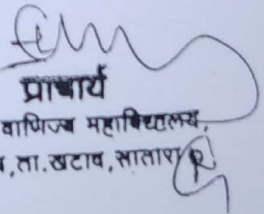 प्राचार्य
वाणिज्य महाविद्यालय,
ता. खटाव, सातारा